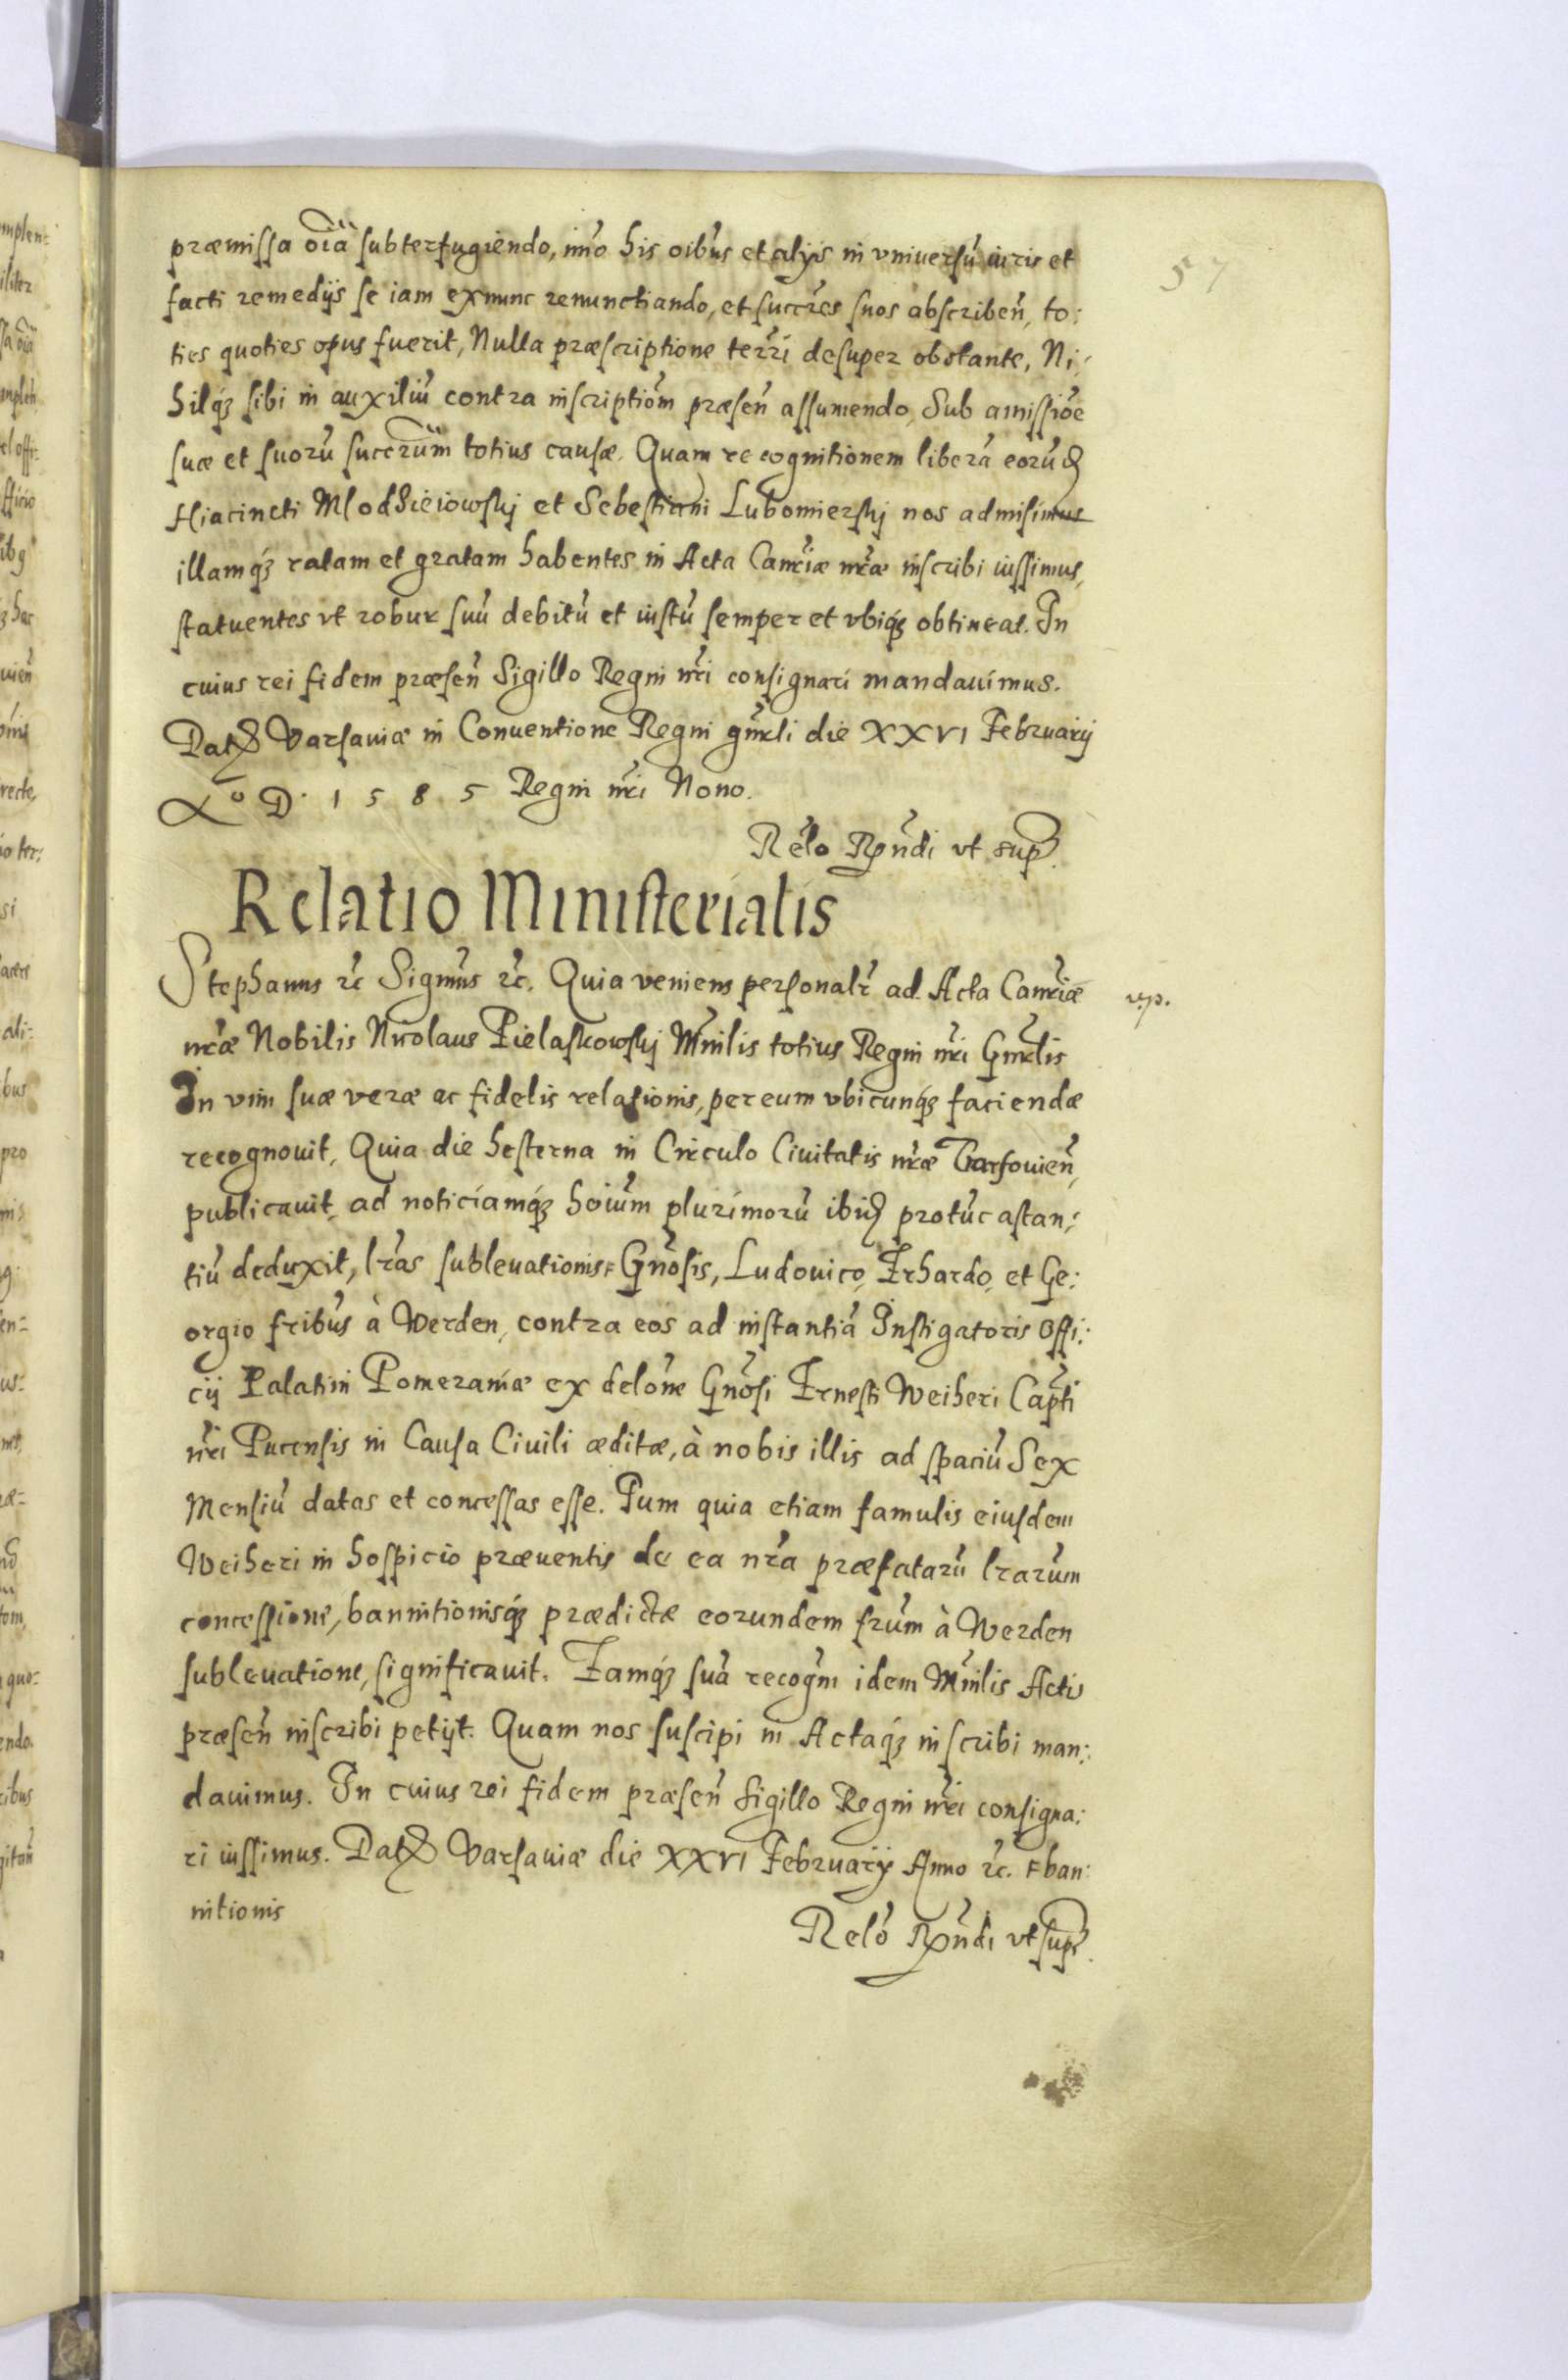 57
præmissa oi͠a subterfugiendo, im̃o his oib̃us et alÿis in vniversũ iuris et
facti remedÿs se iam exnunc renunctiando, et succr̃es suos abscribeñ, to:
ties quoties opus fuerit, Nulla præscriptione terr̃i desuper obstante, Ni:
hilq́ꝫ sibi in auxiliũ contra inscriptiõm præseñ assumendo, Sub amissiõe
suæ et suorũ succr̃um totius causæ. Quam recognitionem liberã eorũd
Hiacincti Mlodzieiowskj et Sebestiani Lubomierskj nos admisimus
illamq́ꝫ ratam et gratam habentes in Acta Canr̃iæ nr̃æ inscribi iussimus,
statuentes vt robur suũ debitũ et iustũ semper et vbiq́ꝫ obtineat. In
cuius rei fidem præseñ Sigillo Regni nr̃i consignari mandauimus.
Datꝫ Varsauiæ in Conuentione Regni gñrli die XXVI Februarij
Aº D. 1585 Regni nr̃i Nono.
Rel̃o Rp̃ndi vt sup
Relatio Ministerialis
Stephanus ꝛc̃ Sigm̃us ꝛc̃. Quia veniens personalr̃ ad Acta Canr̃iæ
nr̃æ Nobilis Nicolaus Pielaskowskj Mñilis totius Regni nr̃i Gñrlis
In vim suæ veræ ac fidelis relationis, per eum vbicunq́ꝫ faciendæ
recognouit, Quia die hesterna in Circulo Ciuitatis nr̃æ Varsouieñ,
publicauit, ad noticiamq́ꝫ hoĩum plurimorũ ibid protũc astan:
tiũ deduxit, lr̃as subleuationis F Gñosis, Ludouico, Erhardo, et Ge:
orgio fr̃ibus à Werden, contra eos ad instantiã Instigatoris Offi:
cij Palatini Pomeraniæ ex delõne Gñosi Ernesti Weiheri Cap̃ti
nr̃i Pucensis in Causa Ciuili æditæ, à nobis illis ad spaciũ Sex
Mensiũ datas et concessas esse. Tum quia etiam famulis eiusdem
Weiheri in hospicio præuentis de ea nr̃a præfatarũ lr̃arum
concessione, bannitionisq́ꝫ prædictæ eorundem fr̃um à Werden
subleuatione, significauit. Eamq́ꝫ suã recogñm idem Mñilis Actis
præseñ inscribi petÿt. Quam nos suscipi in Actaq́ꝫ inscribi man:
dauimus. In cuius rei fidem præseñ Sigillo Regni nr̃i consigna:
ri iussimus. Datꝫ Varsauiæ die XXVI Februarÿ Anno ꝛc. F ban:
nitionis
Relõ Rp̃ndi vt sup̃